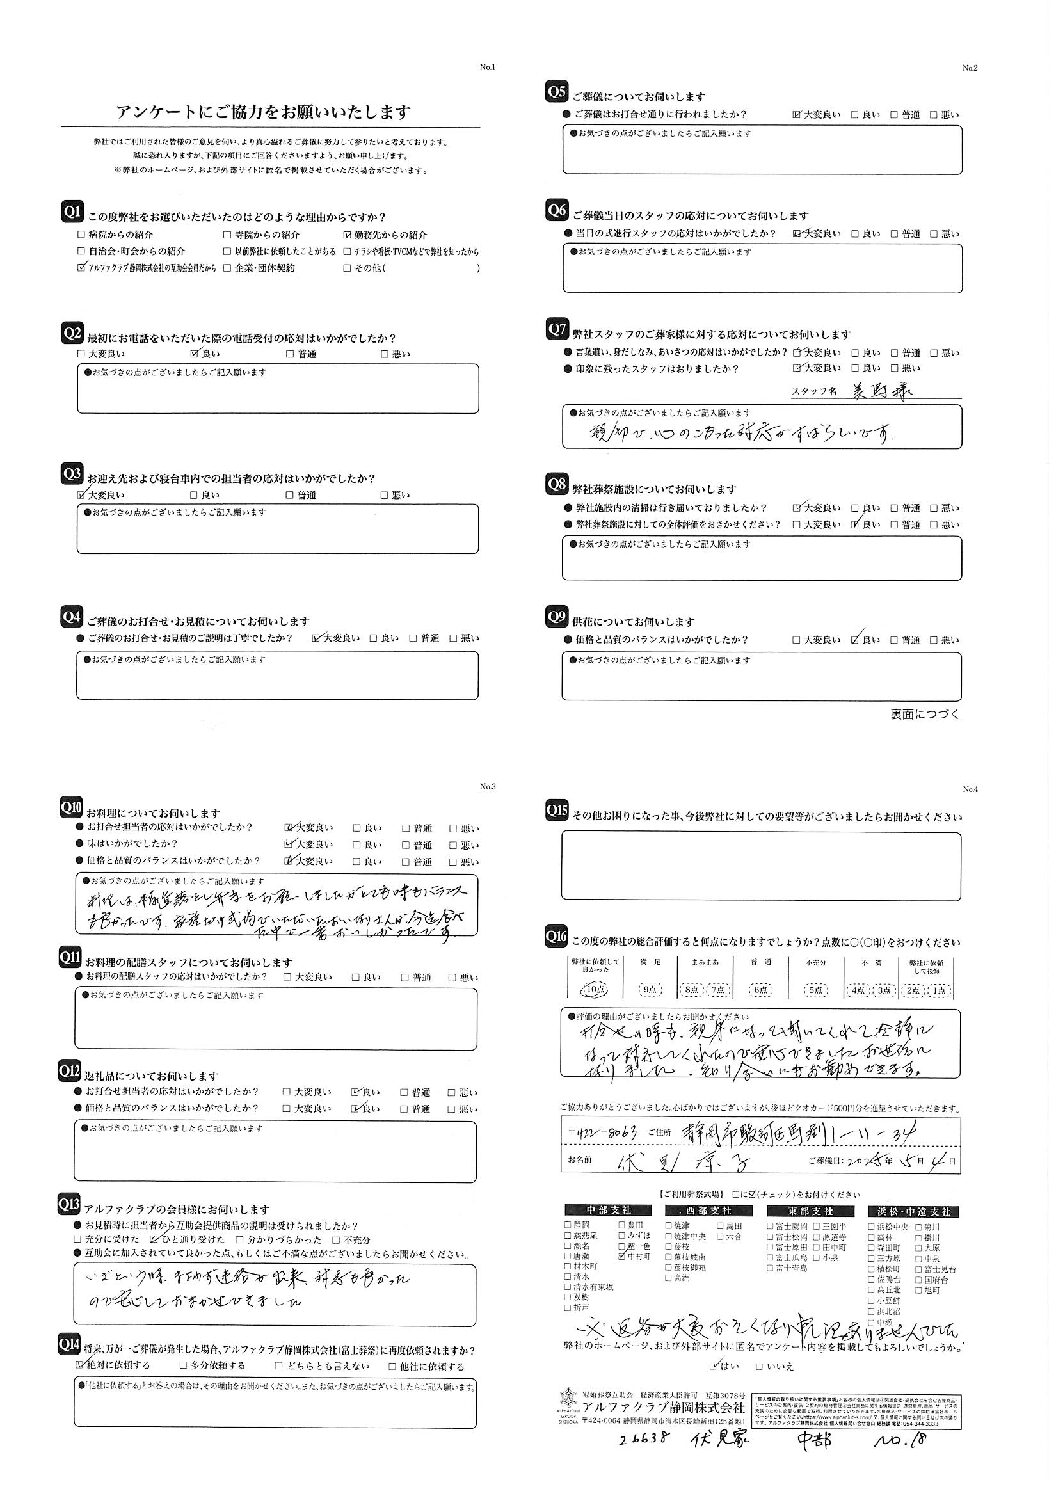 No.1
アンケートにご協力をお願いいたします
弊社ではご利用された皆様のご意見を伺い、より真心溢れるご葬儀に努力して参りたいと考えております。
誠に恐れ入りますが、下記の項目にご回答くださいますよう、お願い申し上げます。
※弊社のホームページ、および外部サイトに匿名で掲載させていただく場合がございます。
Q1 この度弊社をお選びいただいたのはどのような理由からですか?
□ 病院からの紹介 □ 寺院からの紹介 ☑ 勤務先からの紹介
□ 自治会・町会からの紹介 □ 以前弊社に依頼したことがある □ チラシや看板・TVCMなどで弊社を知ったから
☑ アルファクラブ静岡株式会社の互助会会員だから □ 企業・団体契約 □ その他( )
Q2 最初にお電話をいただいた際の電話受付の応対はいかがでしたか?
□ 大変良い ☑ 良い □ 普通 □ 悪い
●お気づきの点がございましたらご記入願います
Q3 お迎え先および寝台車内での担当者の応対はいかがでしたか?
☑ 大変良い □ 良い □ 普通 □ 悪い
●お気づきの点がございましたらご記入願います
Q4 ご葬儀のお打合せ・お見積についてお伺いします
● ご葬儀のお打合せ・お見積のご説明は丁寧でしたか? ☑ 大変良い □ 良い □ 普通 □ 悪い
●お気づきの点がございましたらご記入願います
No.2
Q5 ご葬儀についてお伺いします
● ご葬儀はお打合せ通りに行われましたか? ☑ 大変良い □ 良い □ 普通 □ 悪い
●お気づきの点がございましたらご記入願います
Q6 ご葬儀当日のスタッフの応対についてお伺いします
● 当日の式進行スタッフの応対はいかがでしたか? ☑ 大変良い □ 良い □ 普通 □ 悪い
●お気づきの点がございましたらご記入願います
Q7 弊社スタッフのご葬家様に対する応対についてお伺いします
● 言葉遣い、身だしなみ、あいさつの応対はいかがでしたか? ☑ 大変良い □ 良い □ 普通 □ 悪い
● 印象に残ったスタッフはおりましたか? ☑ 大変良い □ 良い □ 悪い
スタッフ名 美馬様
●お気づきの点がございましたらご記入願います
親切で、心のこもった対応がすばらしいです
Q8 弊社葬祭施設についてお伺いします
● 弊社施設内の清掃は行き届いておりましたか? ☑ 大変良い □ 良い □ 普通 □ 悪い
● 弊社葬祭施設に対しての全体評価をおきかせください? □ 大変良い ☑ 良い □ 普通 □ 悪い
●お気づきの点がございましたらご記入願います
Q9 供花についてお伺いします
● 価格と品質のバランスはいかがでしたか? □ 大変良い ☑ 良い □ 普通 □ 悪い
●お気づきの点がございましたらご記入願います
裏面につづく
No.3
Q10 お料理についてお伺いします
● お打合せ担当者の応対はいかがでしたか? ☑ 大変良い □ 良い □ 普通 □ 悪い
● 味はいかがでしたか? ☑ 大変良い □ 良い □ 普通 □ 悪い
● 価格と品質のバランスはいかがでしたか? ☑ 大変良い □ 良い □ 普通 □ 悪い
●お気づきの点がございましたらご記入願います
弁当をお願いしましたがとても味もバランス
も良かったです。
いただいたおいなりさんが今迄食べ
た中で一番おいしかったです。
Q11 お料理の配膳スタッフについてお伺いします
● お料理の配膳スタッフの応対はいかがでしたか? □ 大変良い □ 良い □ 普通 □ 悪い
●お気づきの点がございましたらご記入願います
Q12 返礼品についてお伺いします
● お打合せ担当者の応対はいかがでしたか? □ 大変良い ☑ 良い □ 普通 □ 悪い
● 価格と品質のバランスはいかがでしたか? □ 大変良い ☑ 良い □ 普通 □ 悪い
●お気づきの点がございましたらご記入願います
Q13 アルファクラブの会員様にお伺いします
● お見積時に担当者から互助会提供商品の説明は受けられましたか?
□ 充分に受けた ☑ ひと通り受けた □ 分かりづらかった □ 不充分
● 互助会に加入されていて良かった点、もしくはご不満な点がございましたらお聞かせください。
いざという時、すぐ連絡が出来、対応も良かった
ので安心しておまかせできました
Q14 将来、万が一ご葬儀が発生した場合、アルファクラブ静岡株式会社(富士葬祭)に再度依頼されますか?
☑ 絶対に依頼する □ 多分依頼する □ どちらとも言えない □ 他社に依頼する
●「他社に依頼する」とお答えの場合は、その理由をお聞かせください。また、お気づきの点がございましたらご記入願います。
No.4
Q15 その他お困りになった事、今後弊社に対しての要望等がございましたらお聞かせください
Q16 この度の弊社の総合評価すると何点になりますでしょうか? 点数に○(○印)をおつけください
弊社に依頼して良かった 満足 まあまあ 普通 不充分 不満 弊社に依頼して後悔
10点 9点 8点 7点 6点 5点 4点 3点 2点 1点
●評価の理由がございましたらお聞かせください
打合せの時も、親身になって聞いてくれて、冷静に
なって対応してくれたので安心できました お世話に
なりました。知り合いにもお勧めできます。
ご協力ありがとうございました。心ばかりではございますが、後ほどクオカード500円分を進呈させていただきます。
〒422-8063 ご住所 静岡市駿河区馬渕1-11-34
お名前 伏見 ご葬儀日:2025年5月4日
【ご利用葬祭式場】 □に☑(チェック)をお付けください
中部支社 西部支社 東部支社 浜松・中遠支社
□ 静岡 □ 豊田 □ 焼津 □ 高田 □ 富士院内 □ 三園平 □ 浜松中央 □ 菊川
□ みずほ □ 焼津中央 □ 六合
☑ 中村町
※ 返答が大変おそくなり申し訳ありませんでした
弊社のホームページ、および外部サイトに匿名でアンケート内容を掲載してもよろしいでしょうか。
☑ はい □ いいえ
冠婚葬祭互助会 経済産業大臣許可 互第3078号
アルファクラブ静岡株式会社
26638 伏見家 中部 No.18